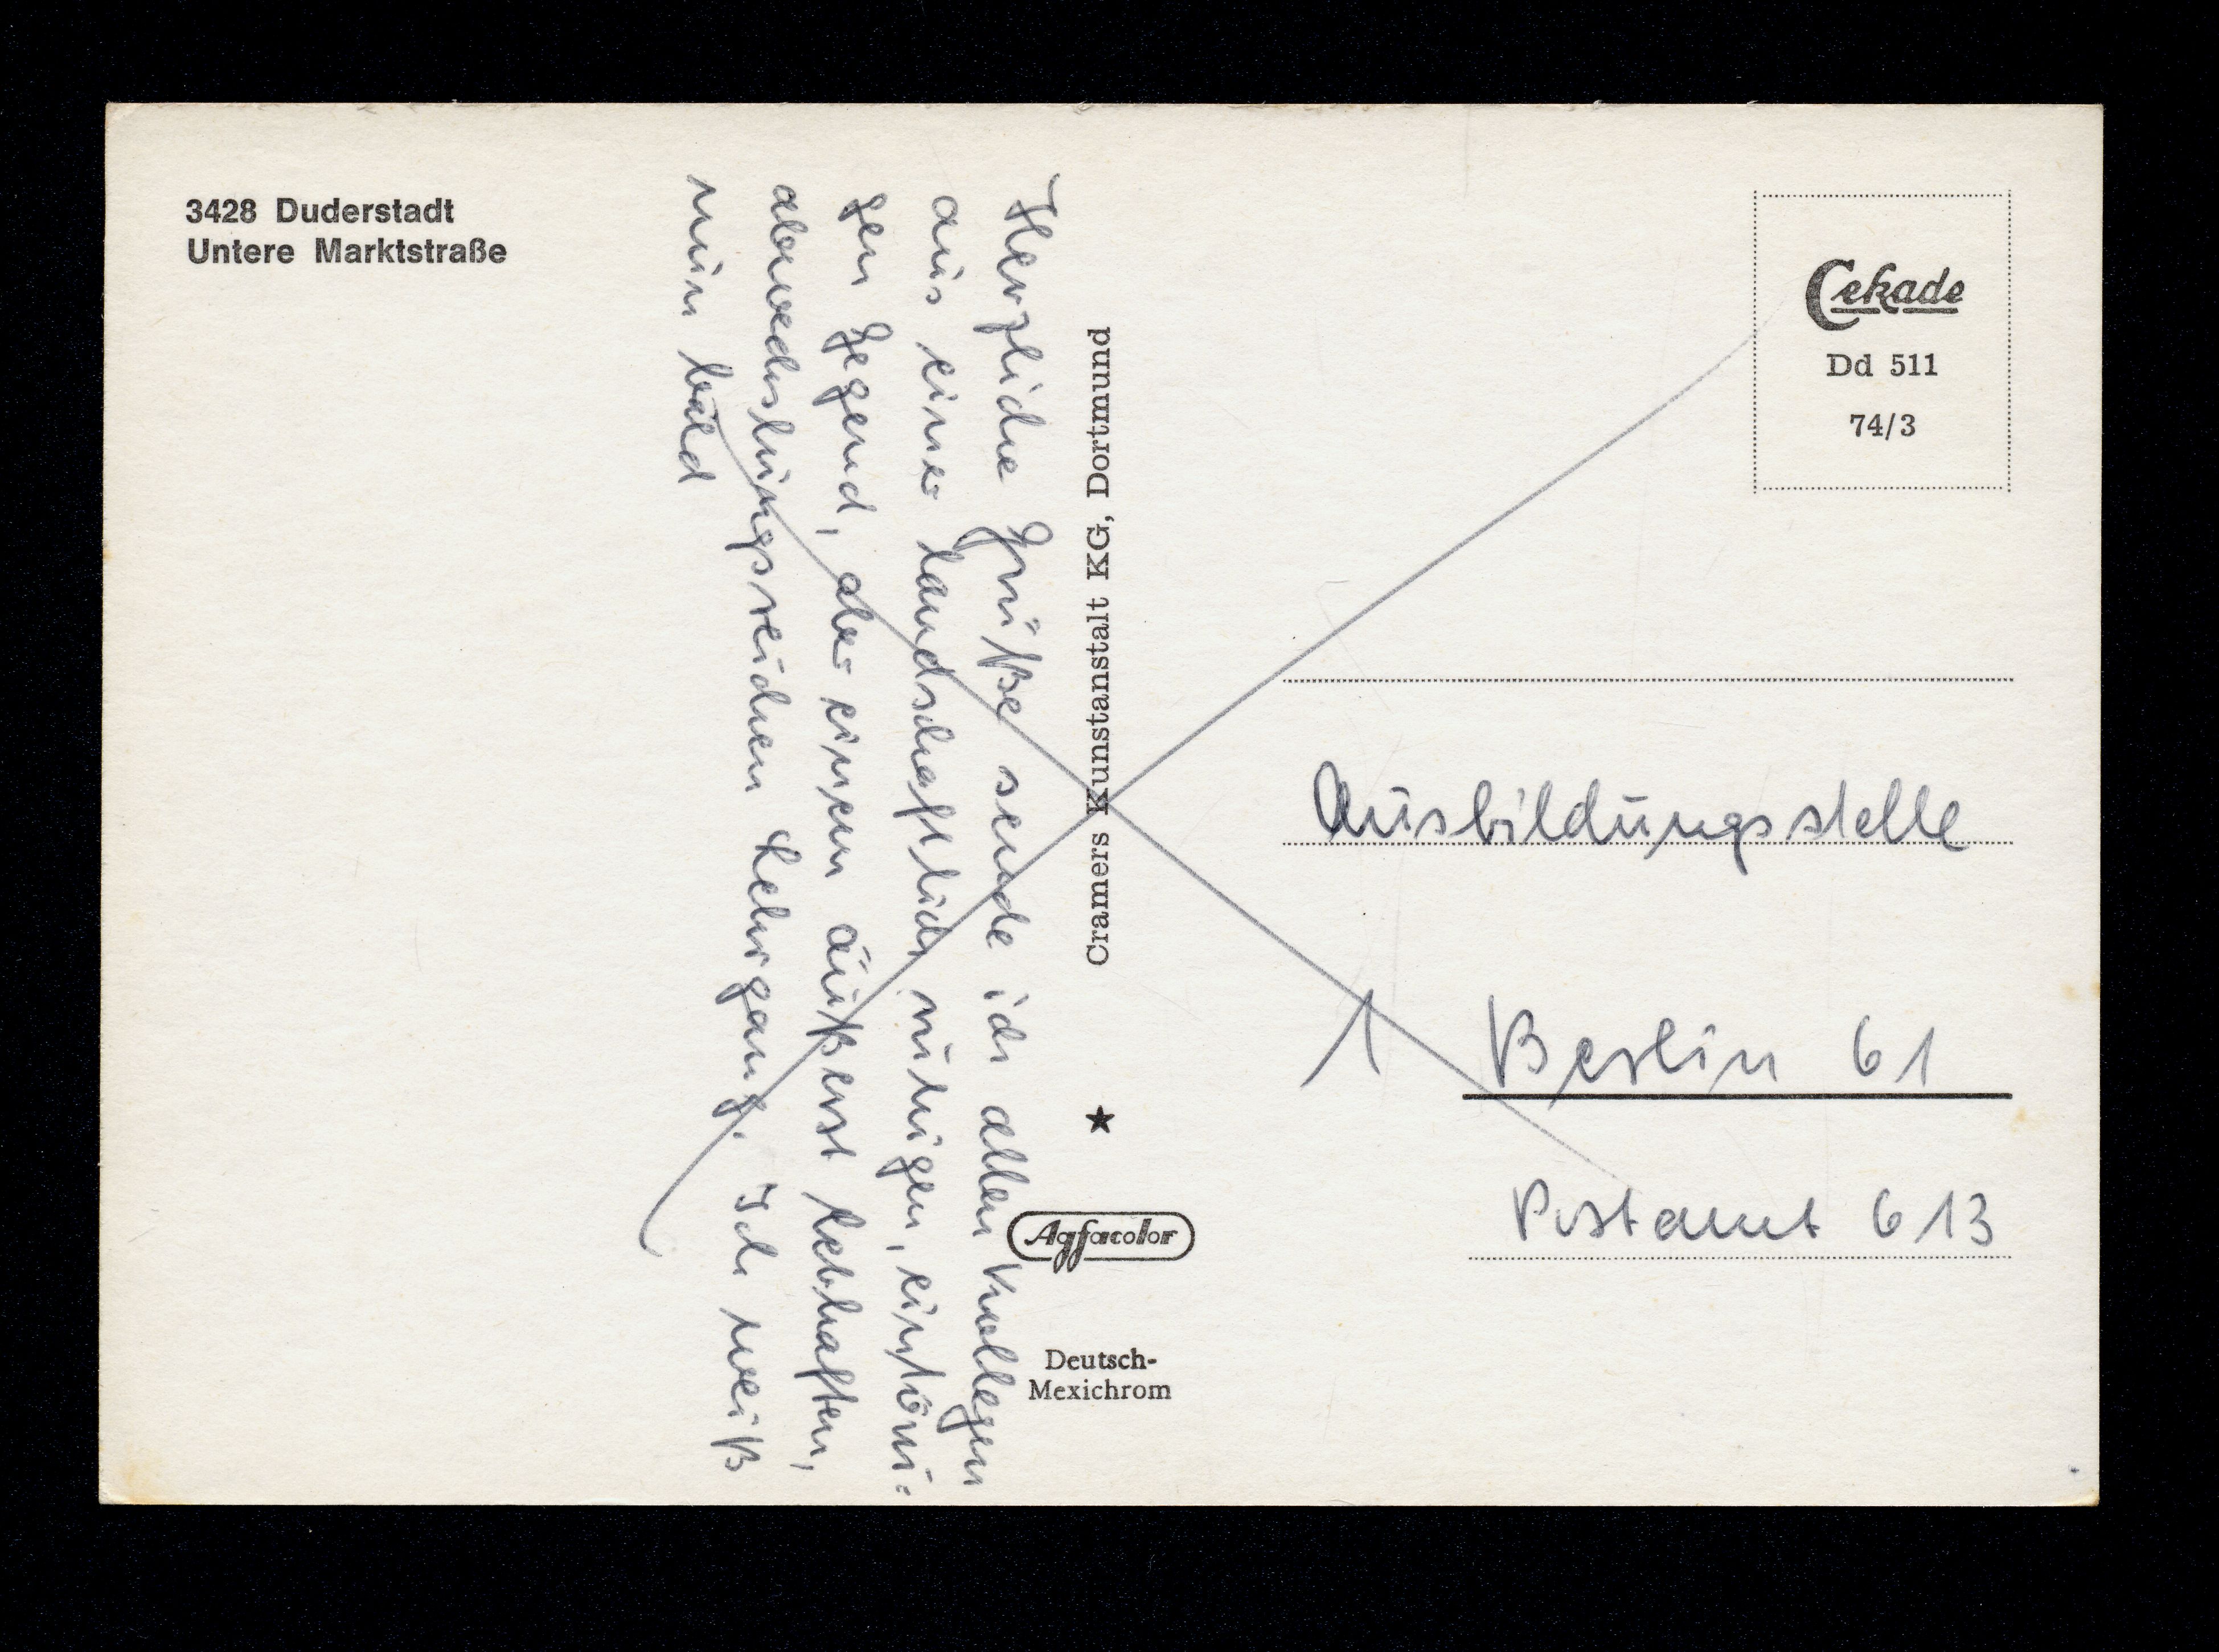 3428 Duderstadt
Untere Marktstraße
Herzliche Grüße sende ich allen Kollegen
aus einer landschaftlich ruhigen, eintöni-
gen Gegend, aber einem äußerst lebhaften,
abwechslungsreichen Lehrgang. Ich weiß
nun bald
Cramers Kunstanstalt KG, Dortmund
★
Agfacolor
Deutsch-
Mexichrom
Cekade
Dd 511
74/3
Ausbildungsstelle
1 Berlin 61
Postamt 613